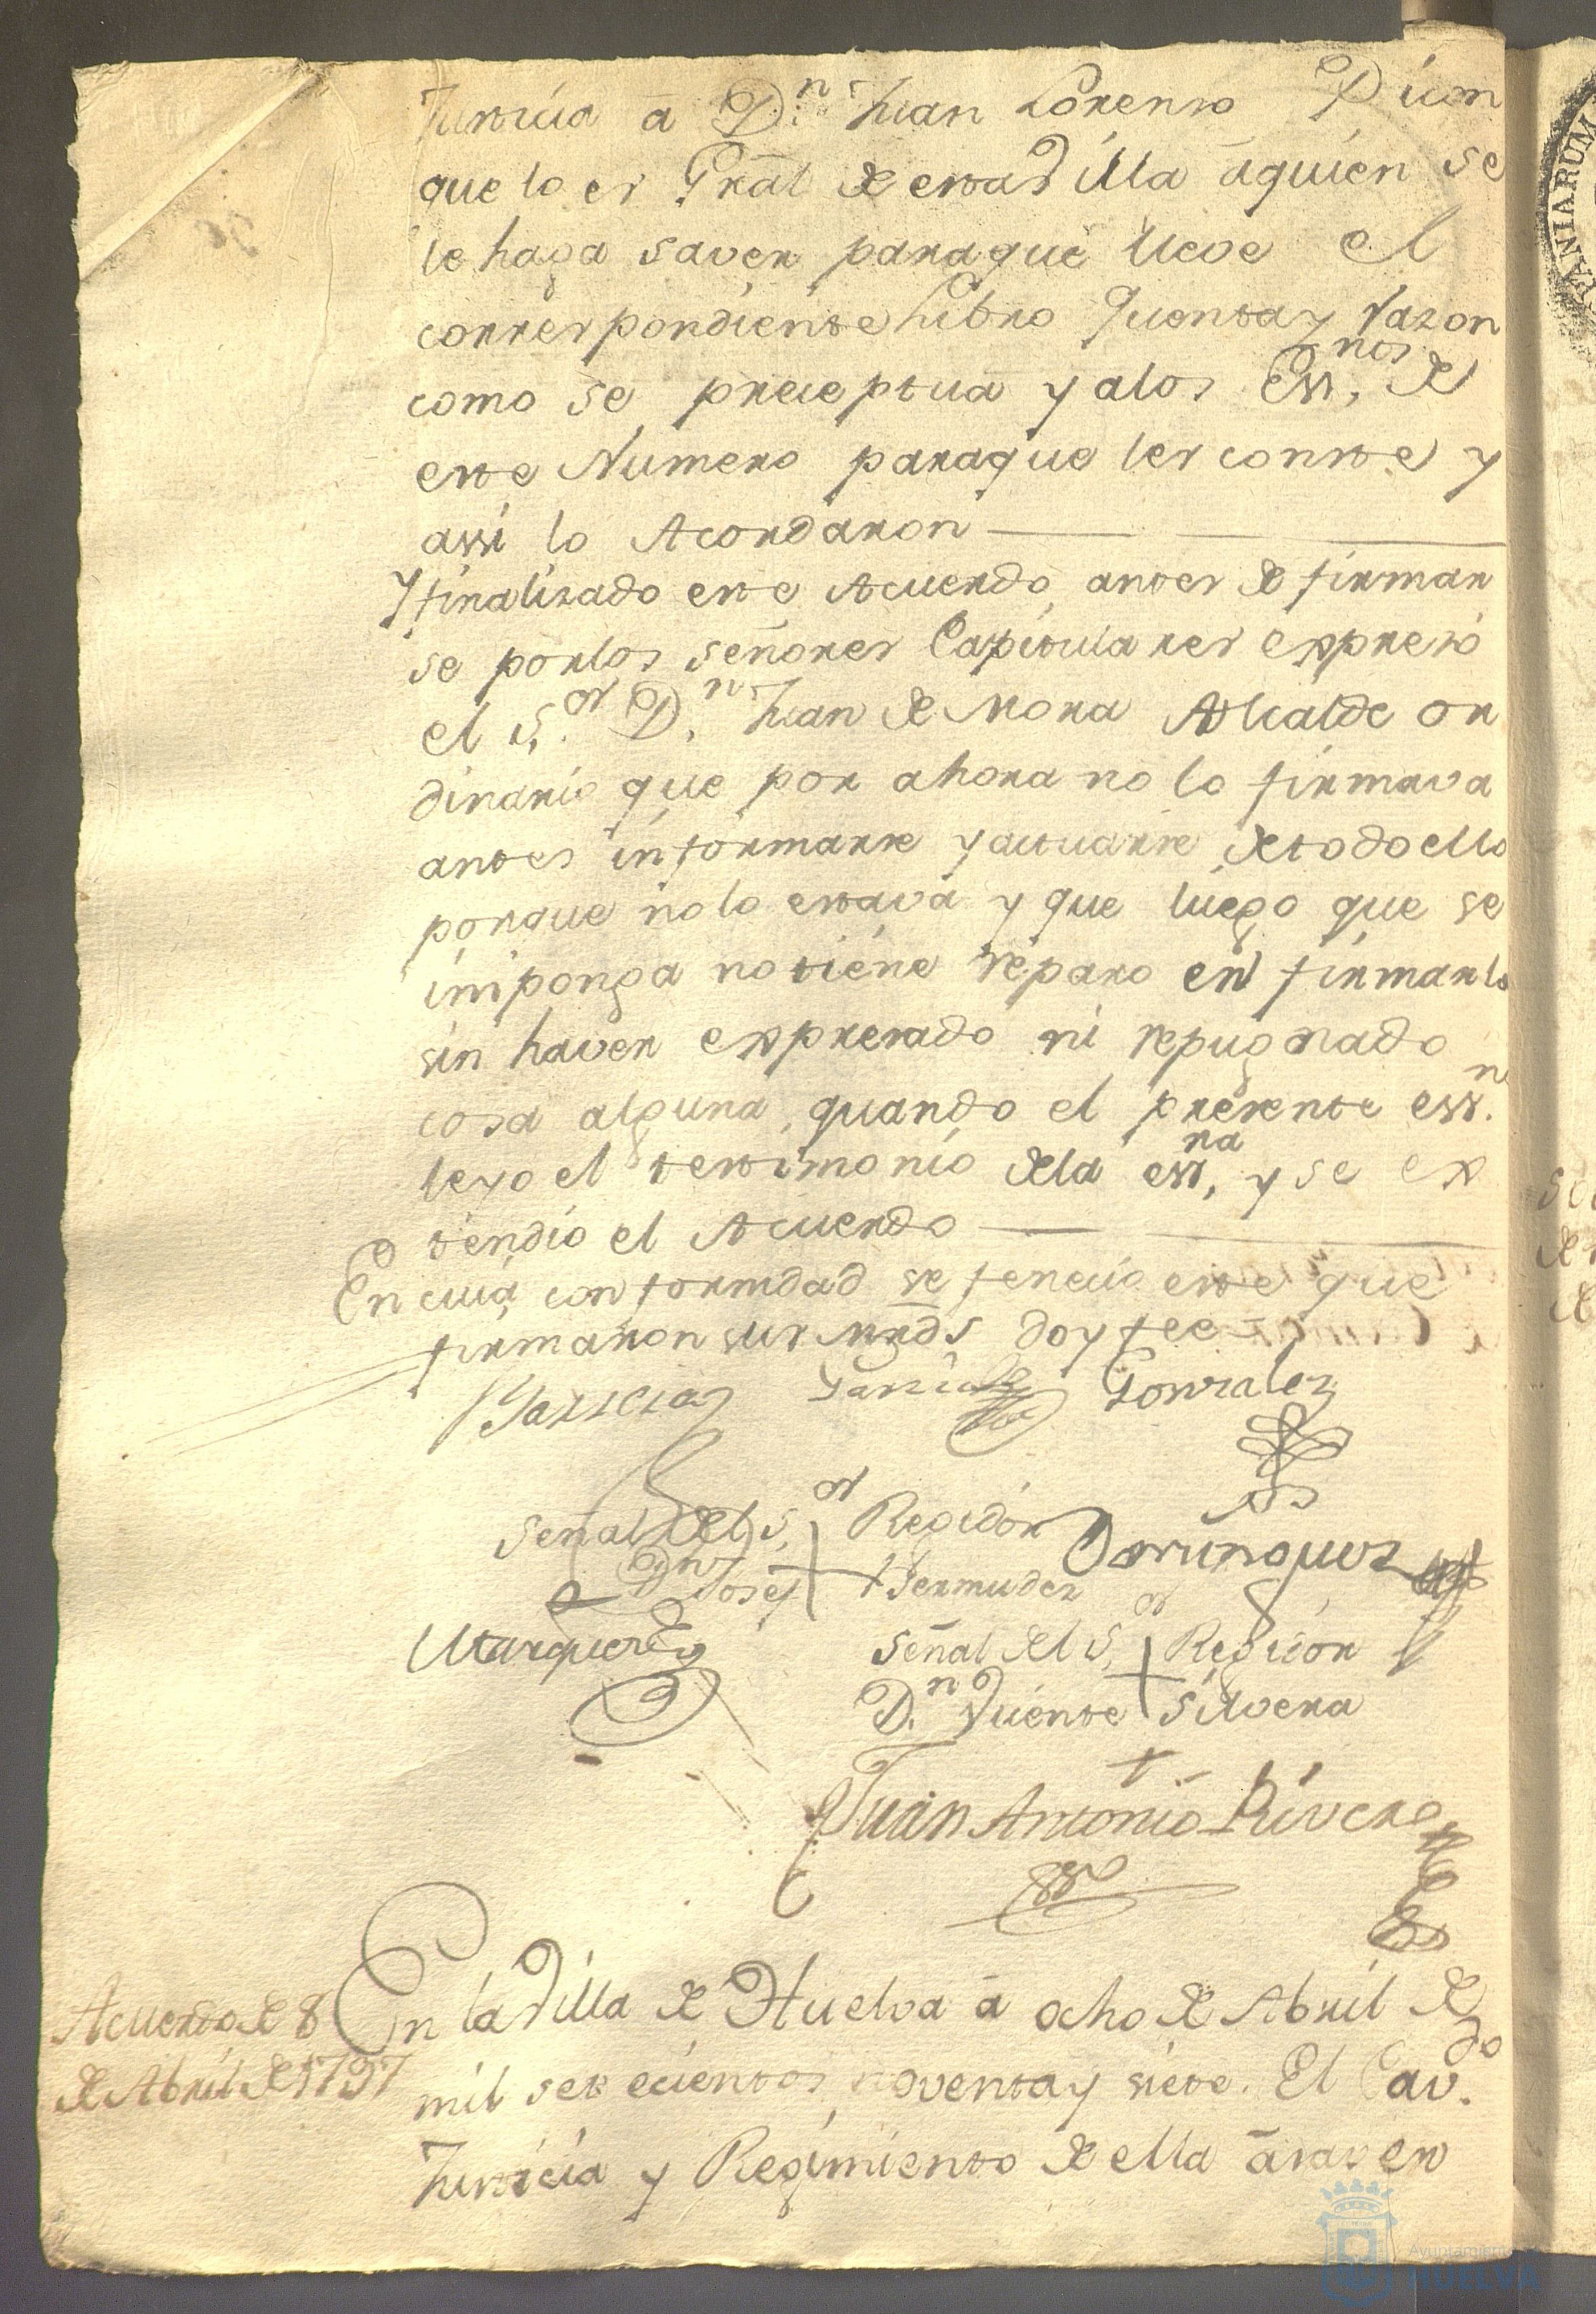 Justicia á D.n Juan Lorenzo Picon
que lo es Gral de esta Villa á quien se
le haga saver para que lleve el
correspondiente Libro Quenta y razon
como se preceptua y a los Essnos. de
este Numero para que les conste y
assi lo Acordaron
Y finalizado este Acuerdo antes de firmar
se por los señores Capitulares expresó
el S.or D.n Juan de Mora Alcalde or
dinario que por ahora no lo firmava
antes informarse y actuarse de todo ello
porque no lo estava y que luego que se
imponga no tiene reparo en firmarlo
sin haver expresado ni repugnado
cosa alguna quando el presente essn.
leyo el testimonio de la essna. y se ex
tendio el Acuerdo
En cuia conformidad se fenecio este que
firmaron sus mrds doy fee
Garcia Garcia Gonzalez
Señal del S.or Regidor
D.n Josef Bermudez
Dominguez
Marquez
Señal del S.or Regidor
D.n Vicente Silvera
Juan Antonio Rivera
Acuerdo de 8
de Abril de 1797
En la Villa de Huelva á ocho de Abril de
mil setecientos noventa y siete. El Cavdo.
Justicia y Regimiento de ella á saver
ANIARUM
Ayuntamiento
HUELVA